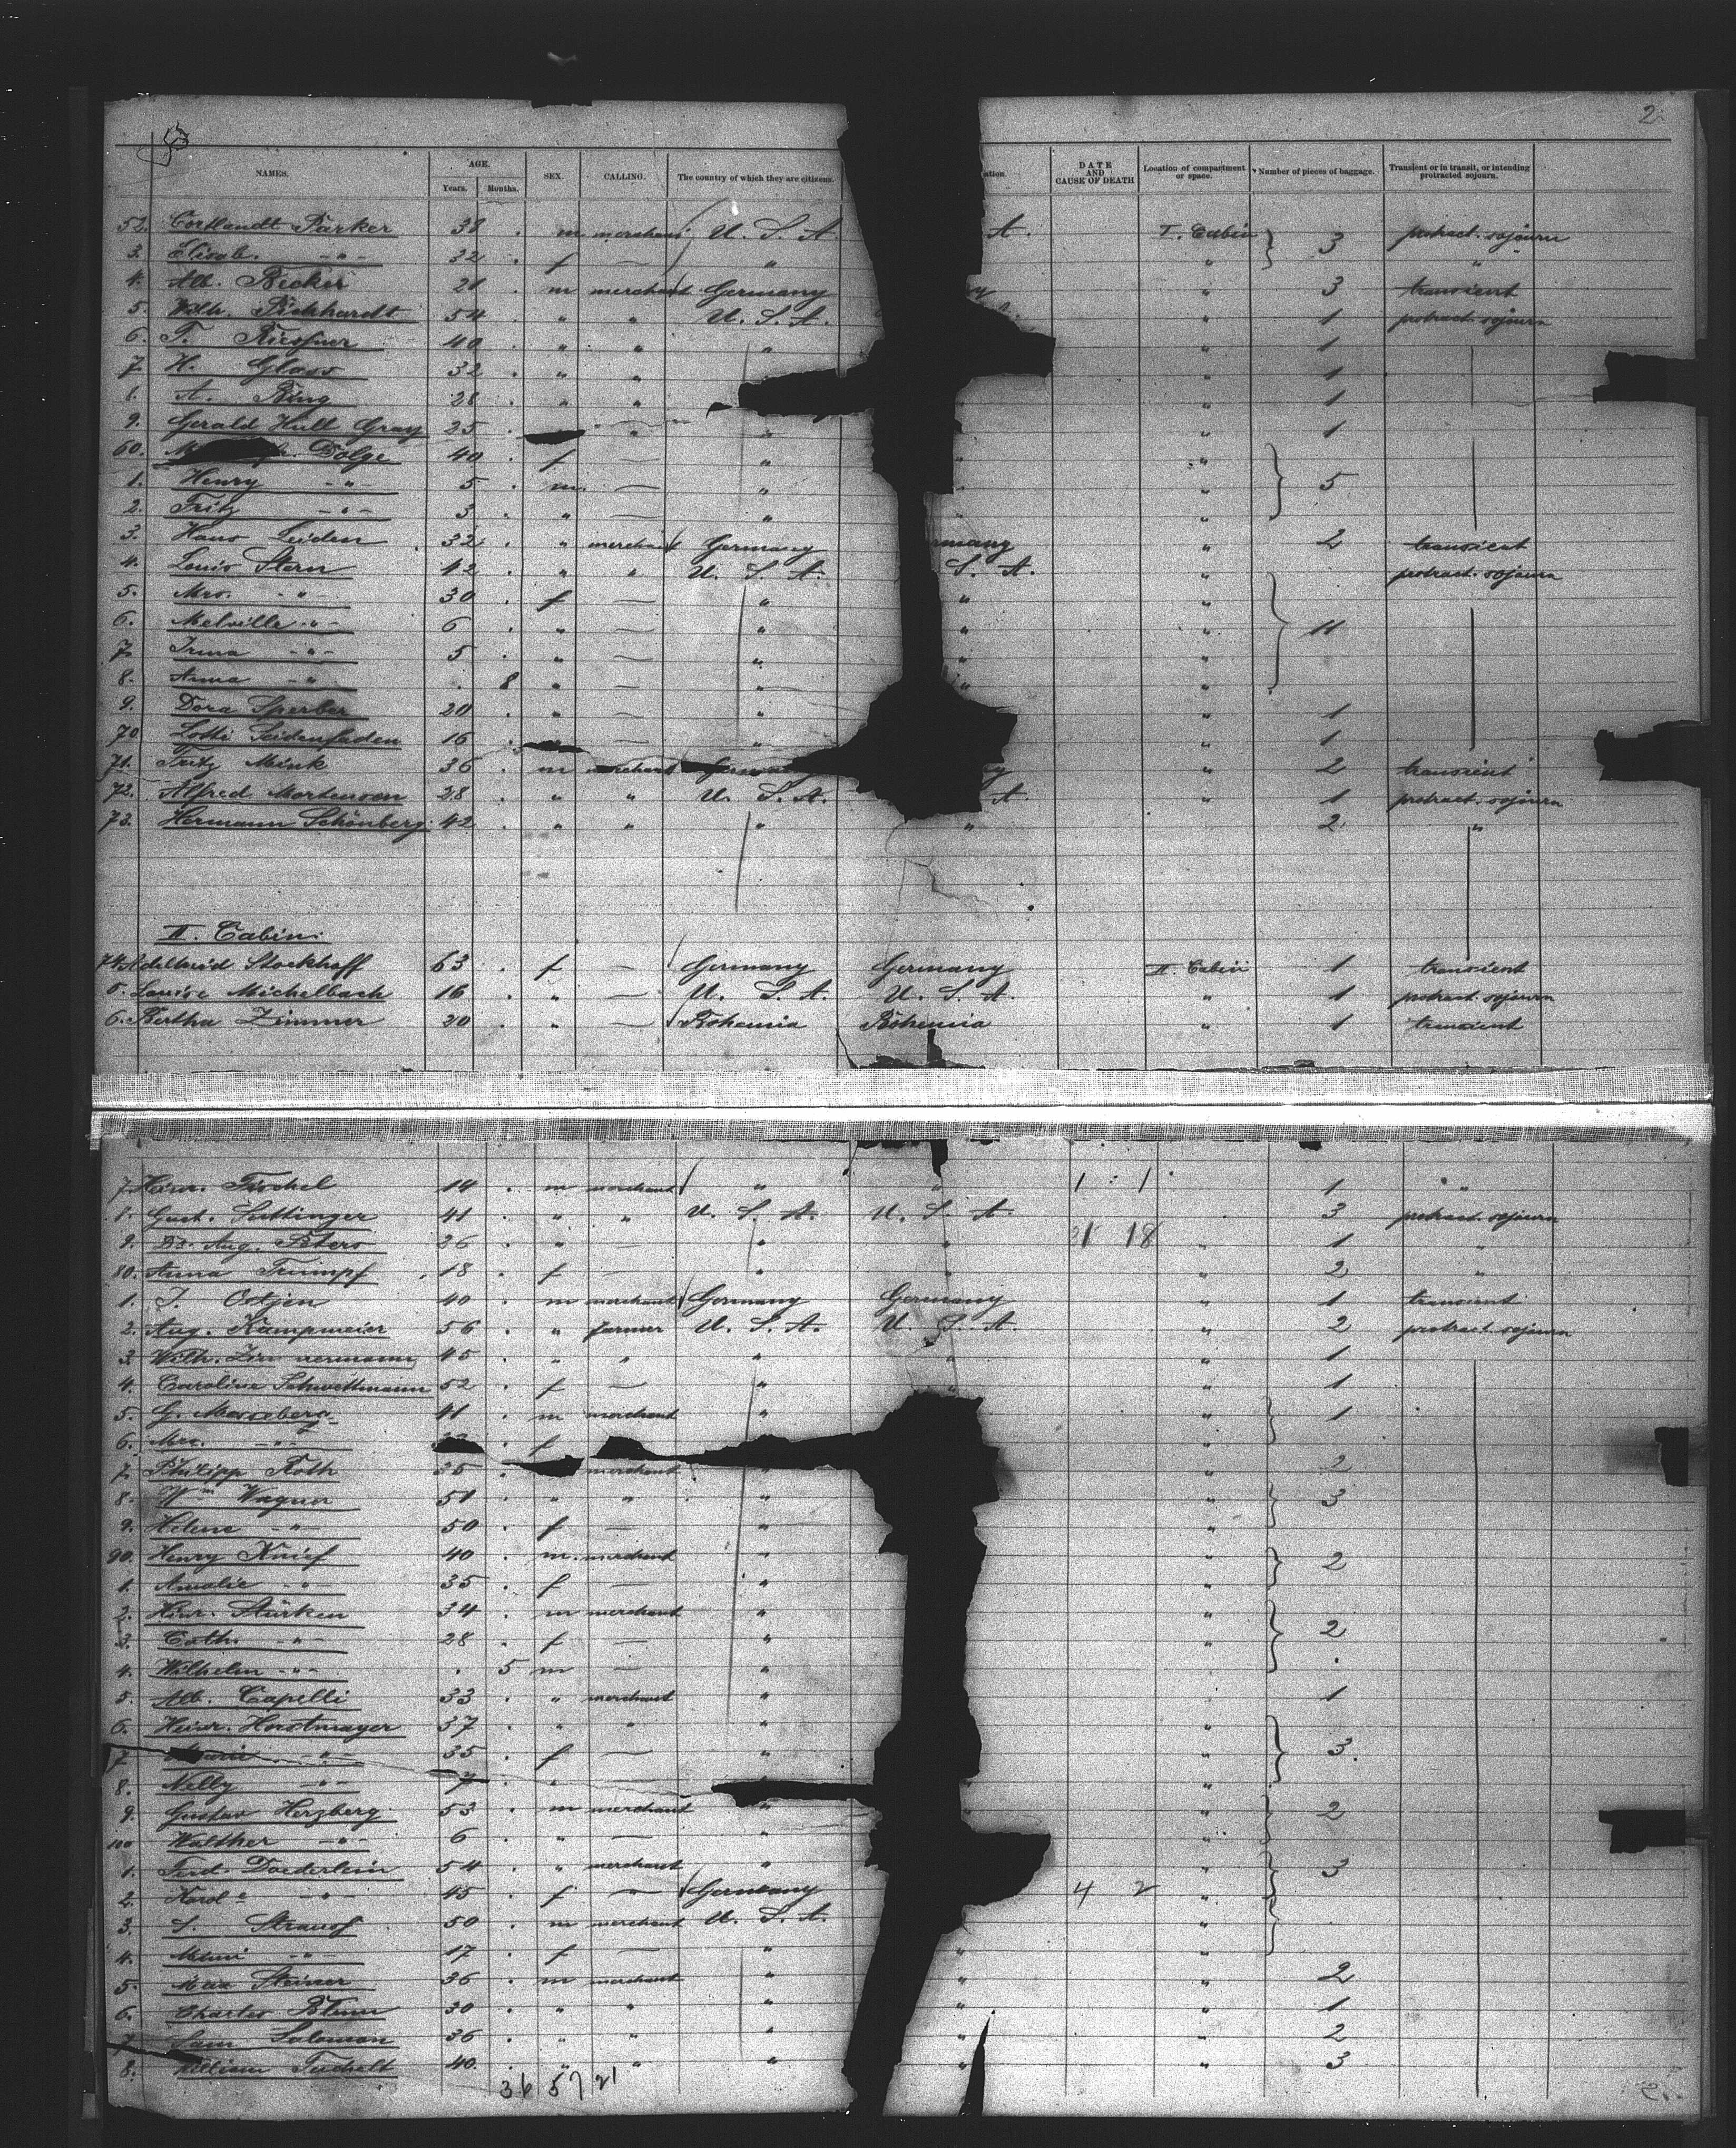 2.
NAMES. AGE. Years. Months. SEX. CALLING. The country of which they are citizens. DATE AND CAUSE OF DEATH Location of compartment or space. Number of pieces of baggage. Transient or in transit, or intending protracted sojourn.
52. Cortlandt Parker 38 . m merchant U. S. A. A. I. Cabin 3 protract. sojourn
3. Elisab. - " - 32 . f — " " "
4. Alb. Becker 21 . m merchant Germany " 3 transient
5. Wilh. Pickhardt 54 . " " U. S. A. " 1 protract. sojourn
6. F. 40 . " " " " 1
7. H. Glass 32 . " " " 1
8. A. Bing 28 . " " " 1
9. Gerald Hull Gray 25 . " " " 1
60. Dolge 40 . f — " " "
1. Henry - " - 5 . m. — " " " 5
2. Fritz - " - 3 . " — " " "
3. Hans Leiden 32 . " merchant Germany " 2 transient
4. Louis Stern 42 . " " U. S. A. S. A. " protract. sojourn
5. Mrs. - " - 30 . f — " " "
6. Melville - " - 6 . " — " " " 11
7. Irma - " - 5 . " — " " "
8. Anna - " - . 8 " — " " "
9. Dora Sperber 20 . " — " " 1
70 Lotti Seidenfaden 16 . — " " 1
71. Fritz Mink 36 . m merchant Germany " 2 transient
72. Alfred Mortensen 28 . " " U. S. A. A. " 1 protract. sojourn
73. Hermann Schönberg 42 . " " " " 2 "
II. Cabin:
74. Adelheid Stockhoff 63 . f — Germany Germany II. Cabin 1 transient
5. Louise Michelbach 16 . " — U. S. A. U. S. A. " 1 protract. sojourn
6. Bertha Zimmer 20 . " — Bohemia Bohemia " 1 transient
7. Heinr. Fischel 14 . m merchant " " 1 "
8. Gust. Suttinger 41 . " " U. S. A. U. S. A. 3 protract. sojourn
9. Dr. Aug. Peters 26 . " — " " 18 " 1 "
80. Anna Trumpf 18 . f — " " " 2 "
1. J. Oetjen 40 . m merchant Germany Germany " 1 transient
2. Aug. Kampmeier 56 . " farmer U. S. A. U. S. A. " 2 protract. sojourn
3. Wilh. Zimmermann 45 . " " " " " 1
4. Caroline Schwettmann 52 . f — " " " 1
5. G. 41 . m merchant " " 1
6. Mrs. - " - . f
7. Philipp Roth 35 . merchant " " 2
8. Wm Wagner 51 . " " " " 3
9. Helene - " - 50 . f — " "
90. Henry Knief 40 . m. merchant " " 2
1. Amalie - " - 35 . f — " "
2. Hinr. Stürken 34 . m merchant " "
3. Cath. - " - 28 . f — " " 2
4. Wilhelm - " - . 5 m — "
5. Alb. Capelli 33 . " merchant " 1
6. Heinr. Horstmayer 37 . " " " "
7. - " - 35 . f — " " 3.
8. Nelly - " - 7 . " — "
9. Gustav Herzberg 53 . m merchant " " 2
100 Walther - " - 6 . " — " "
1. Ferd. Doederlein 54 . " merchant " " 3
2. - " - 45 . f — Germany 4 2 "
3. S. Strauss 50 . m merchant U. S. A. "
4. - " - 17 . f — " " "
5. Max Steiner 36 . m merchant " " " 2
6. Charles 30 . " " " " " 1
7. Sam Salomon 36 . " " " " " 2
8. William Tuchelt 40. . " " " " " 3
36 57 21